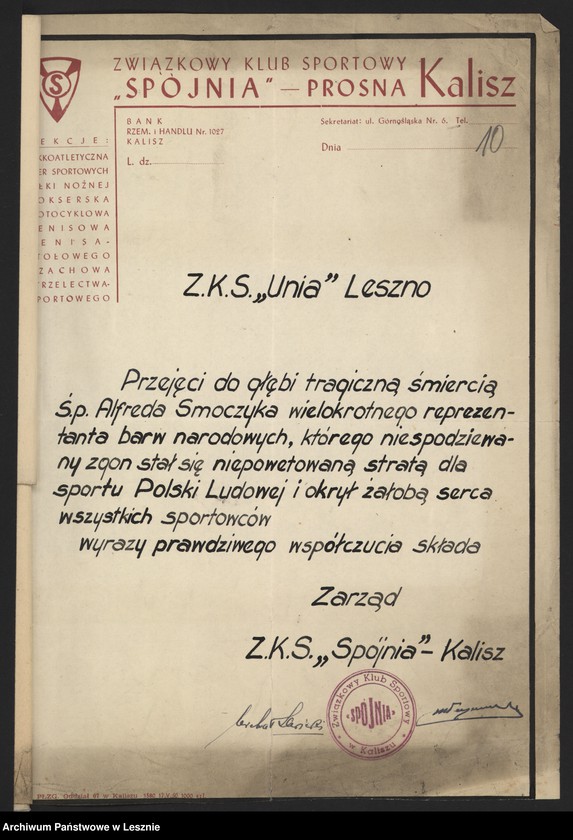 ZWIĄZKOWY KLUB SPORTOWY
„SPÓJNIA" — PROSNA Kalisz
S
BANK
RZEM. i HANDLU Nr. 1027
KALISZ
L. dz.
Sekretariat: ul. Górnośląska Nr. 6. Tel.
Dnia
10
EKCJE:
KKOATLETYCZNA
ER SPORTOWYCH
ŁKI NOŻNEJ
OKSERSKA
OTOCYKLOWA
ENISOWA
ENISA-
TOŁOWEGO
ZACHOWA
RZELECTWA-
PORTOWEGO
Z.K.S. „Unia" Leszno
Przejęci do głębi tragiczną śmiercią
Ś.p. Alfreda Smoczyka wielokrotnego reprezen-
tanta barw narodowych, którego niespodziewa-
ny zgon stał się niepowetowaną stratą dla
sportu Polski Ludowej i okrył żałobą serca
wszystkich sportowców
wyrazy prawdziwego współczucia składa
Zarząd
Z.K.S. „Spójnia" - Kalisz
Związkowy Klub Sportowy
«SPÓJNIA»
w Kaliszu
Oddział 61 w Kaliszu
Archiwum Państwowe w Lesznie